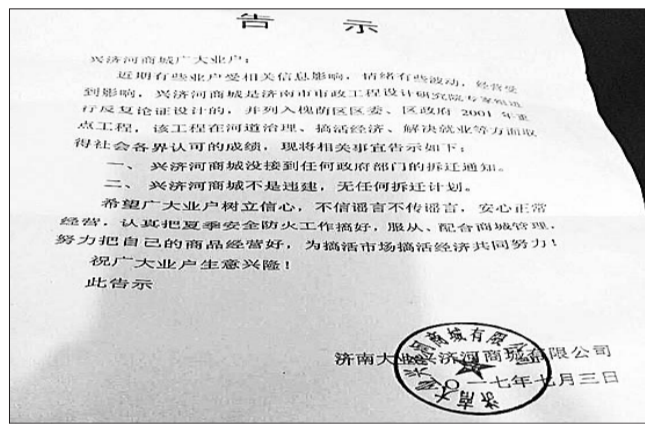 告 示
兴济河商城广大业户：
近期有些业户受相关信息影响，情绪有些波动，经营受
到影响，兴济河商城是济南市市政工程设计研究院专家组进
行反复论证设计的，并列入槐荫区区委、区政府 2001 年重
点工程，该工程在河道治理、搞活经济、解决就业等方面取
得社会各界认可的成绩，现将相关事宜告示如下：
一、兴济河商城没接到任何政府部门的拆迁通知。
二、兴济河商城不是违建，无任何拆迁计划。
希望广大业户树立信心，不信谣言不传谣言，安心正常
经营，认真把夏季安全防火工作搞好，服从、配合商城管理，
努力把自己的商品经营好，为搞活市场搞活经济共同努力！
祝广大业户生意兴隆！
此告示
济南大业兴济河商城有限公司
二〇一七年七月三日